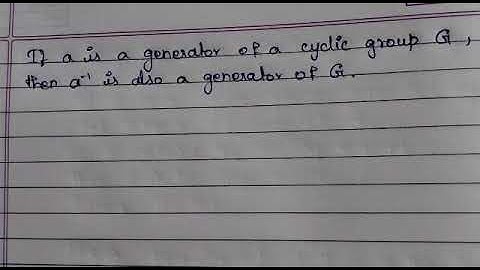 If a is a generator of a cyclic group G,
then a⁻¹ is also a generator of G.